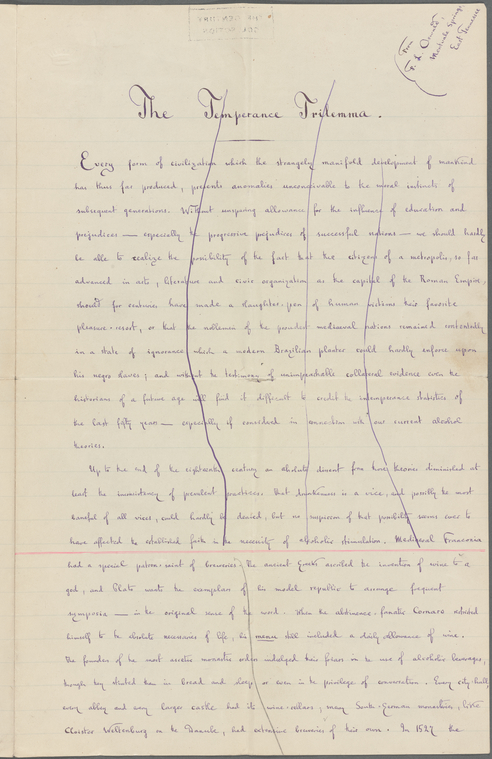 From
F. L. Oswald,
Montvale Springs,
East Tennessee
The Temperance Trilemma.
Every form of civilization which the strangely manifold development of mankind
has thus far produced, presents anomalies unconceivable to the moral instincts of
subsequent generations. Without unsparing allowance for the influence of education and
prejudices — especially the progressive prejudices of successful nations — we should hardly
be able to realize the possibility of the fact that the citizens of a metropolis, so far
advanced in arts, literature and civic organization as the capital of the Roman Empire,
should for centuries have made a slaughter-pen of human victims their favorite
pleasure-resort, or that the noblemen of the proudest mediaeval nations remained contentedly
in a state of ignorance which a modern Brazilian planter could hardly enforce upon
his negro slaves; and without the testimony of unimpeachable collateral evidence even the
historians of a future age will find it difficult to credit the intemperance statistics of
the last fifty years — especially if considered in connection with our current alcohol
theories.
Up to the end of the eighteenth century an absolute dissent from those theories diminished at
least the inconsistency of prevalent practices. That drunkenness is a vice, and possibly the most
harmful of all vices, could hardly be denied, but no suspicion of that possibility seems ever to
have affected the established faith in the necessity of alcoholic stimulation. Mediaeval Franconia
had a special patron-saint of breweries; the ancient Greeks ascribed the invention of wine to a
god, and Plato wants the exemplars of his model republic to arrange frequent
symposia — in the original sense of the word. When the abstinence-fanatic Cornaro restricted
himself to the absolute necessaries of life, his menu still included a daily allowance of wine.
The founders of the most ascetic monastic orders indulged their friars in the use of alcoholic beverages,
though they stinted them in bread and sleep or even in the privilege of conversation. Every city-hall,
every abbey and every larger castle had its wine-cellars; many South-German monasteries, like
Cloister Weltenburg on the Danube, had extensive breweries of their own. In 1527 the